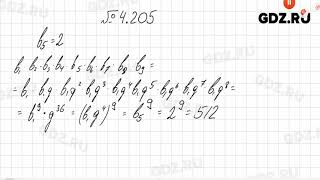 № 4.205
GDZ.RU
b₅=2
b₁ b₂ b₃ b₄ b₅ b₆ b₇ b₈ b₉ =
= b₁ · b₁g · b₁g² · b₁g³ · b₁g⁴ b₁g⁵ · b₁g⁶ b₁g⁷ b₁g⁸ =
= b₁⁹ · g³⁶ = (b₁g⁴)⁹ = b₅⁹ = 2⁹ = 512